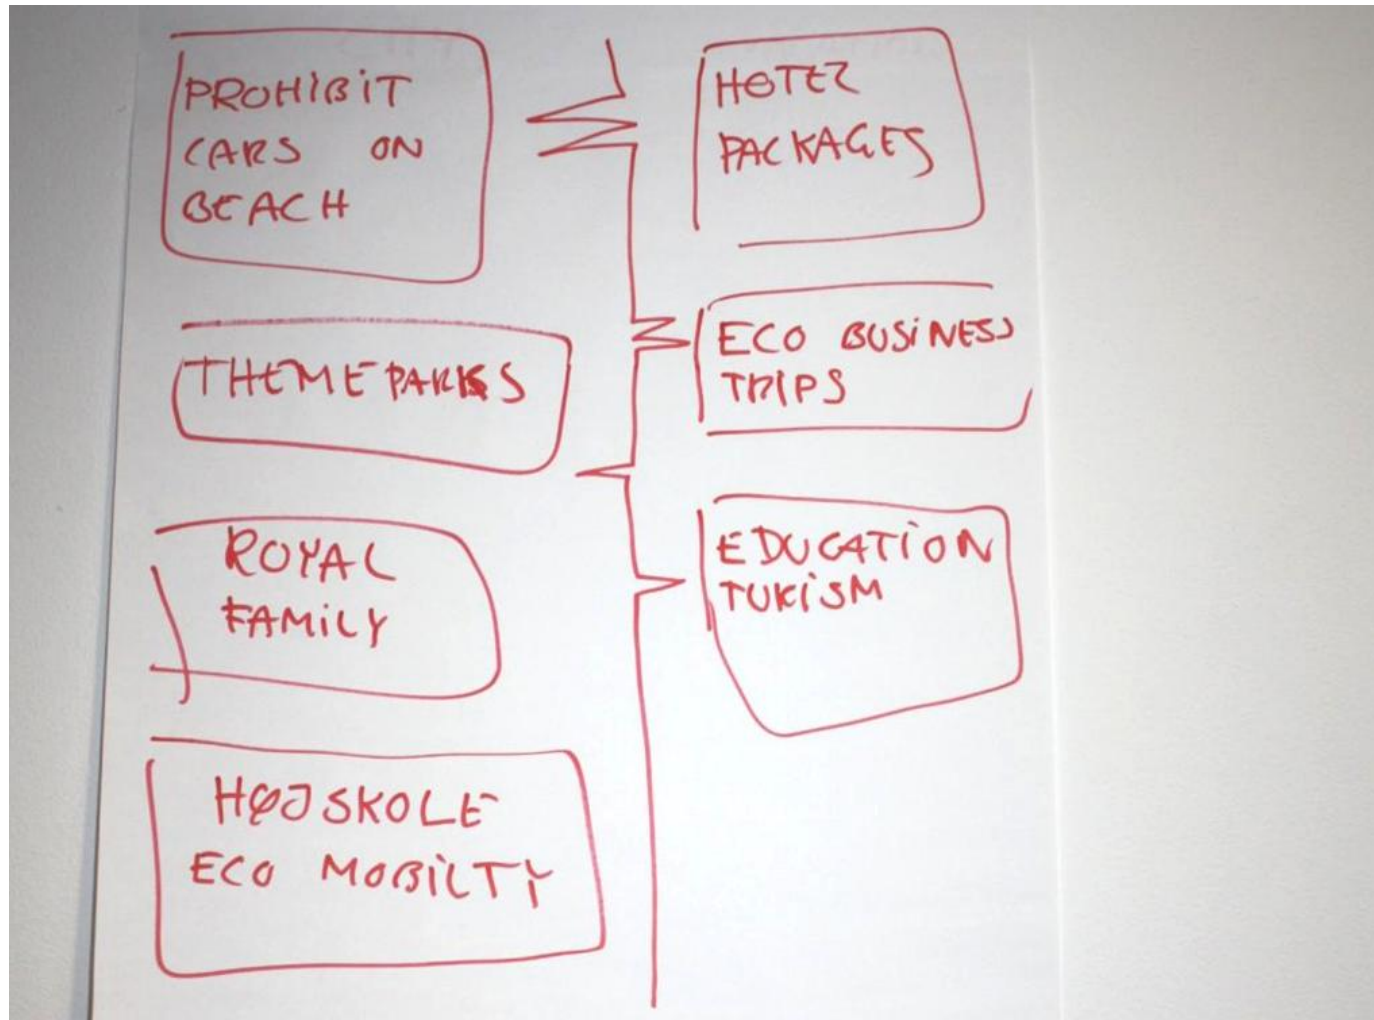 PROHIBIT
CARS ON
BEACH
THEMEPARKS
ROYAL
FAMILY
HØJSKOLE
ECO MOBILTY
HOTEL
PACKAGES
ECO BUSINESS
TRIPS
EDUCATION
TURISM